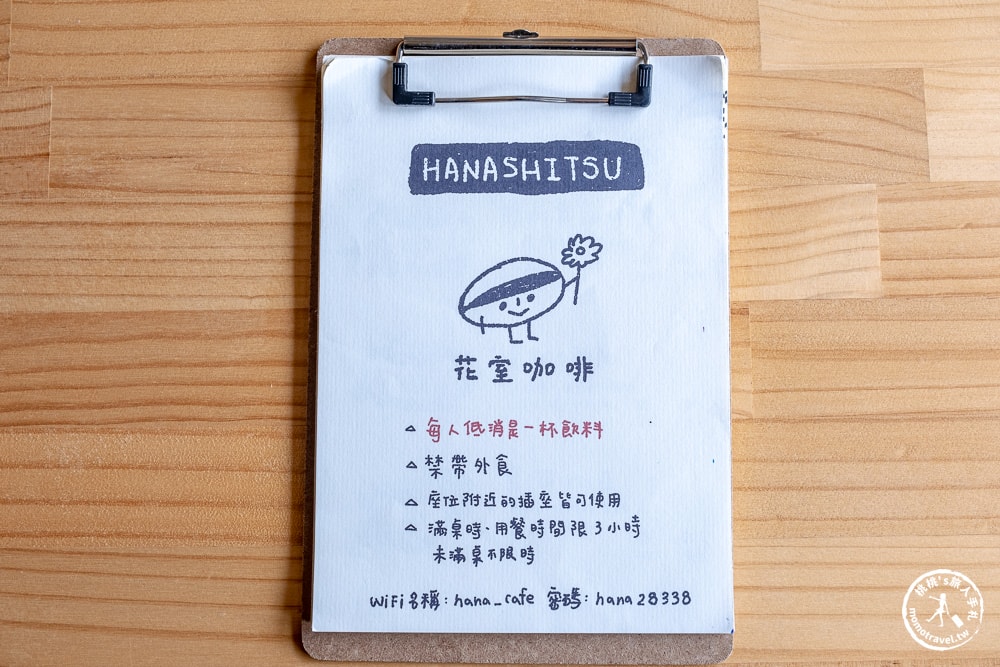 HANASHITSU
花室咖啡
△ 每人低消是一杯飲料
△ 禁帶外食
△ 座位附近的插座皆可使用
△ 滿桌時、用餐時間限3小時
未滿桌不限時
WiFi名稱：hana_cafe 密碼：hana28338
桃桃's旅人手札
momotravel.tw